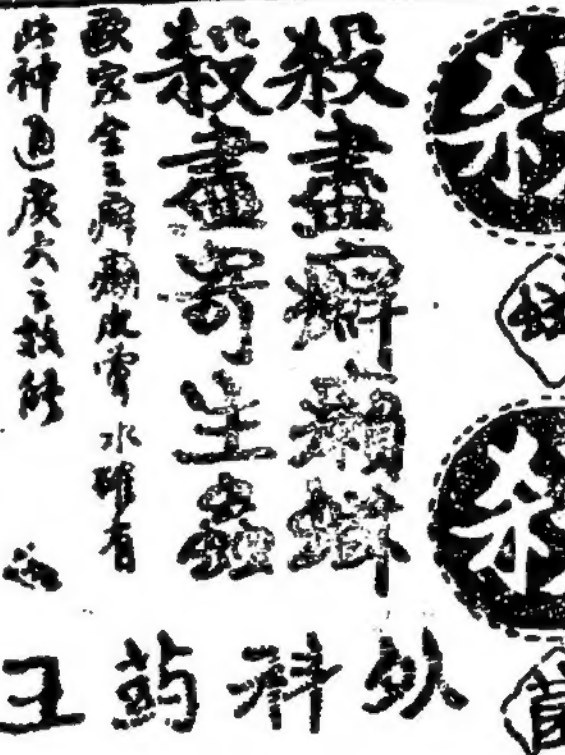 殺
殺
殺盡癬癩
殺盡寄生蟲
歐家全之癬癩皮膚水確有
此神通廣大之效能
外科葯王